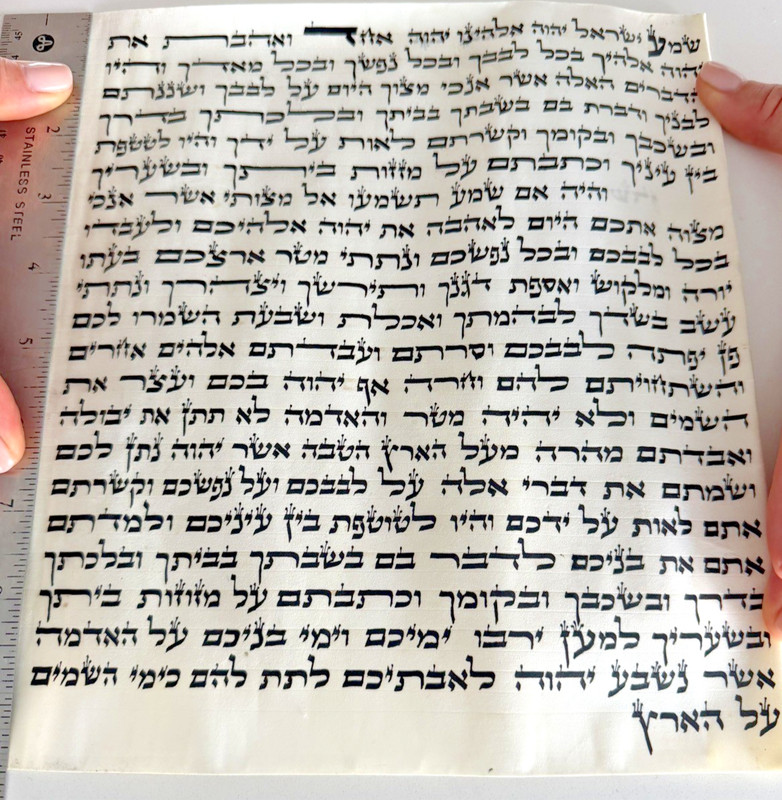 שמע ישראל יהוה אלהינו יהוה אחד ואהבת את
יהוה אלהיך בכל לבבך ובכל נפשך ובכל מאדך והיו
הדברים האלה אשר אנכי מצוך היום על לבבך ושננתם
לבניך ודברת בם בשבתך בביתך ובלכתך בדרך
ובשכבך ובקומך וקשרתם לאות על ידך והיו לטטפת
בין עיניך וכתבתם על מזזות ביתך ובשעריך
והיה אם שמע תשמעו אל מצותי אשר אנכי
מצוה אתכם היום לאהבה את יהוה אלהיכם ולעבדו
בכל לבבכם ובכל נפשכם ונתתי מטר ארצכם בעתו
יורה ומלקוש ואספת דגנך ותירשך ויצהרך ונתתי
עשב בשדך לבהמתך ואכלת ושבעת השמרו לכם
פן יפתה לבבכם וסרתם ועבדתם אלהים אחרים
והשתחויתם להם וחרה אף יהוה בכם ועצר את
השמים ולא יהיה מטר והאדמה לא תתן את יבולה
ואבדתם מהרה מעל הארץ הטבה אשר יהוה נתן לכם
ושמתם את דברי אלה על לבבכם ועל נפשכם וקשרתם
אתם לאות על ידכם והיו לטוטפת בין עיניכם ולמדתם
אתם את בניכם לדבר בם בשבתך בביתך ובלכתך
בדרך ובשכבך ובקומך וכתבתם על מזוזות ביתך
ובשעריך למען ירבו ימיכם וימי בניכם על האדמה
אשר נשבע יהוה לאבתיכם לתת להם כימי השמים
על הארץ
STAINLESS STEEL
2
3
4
5
7